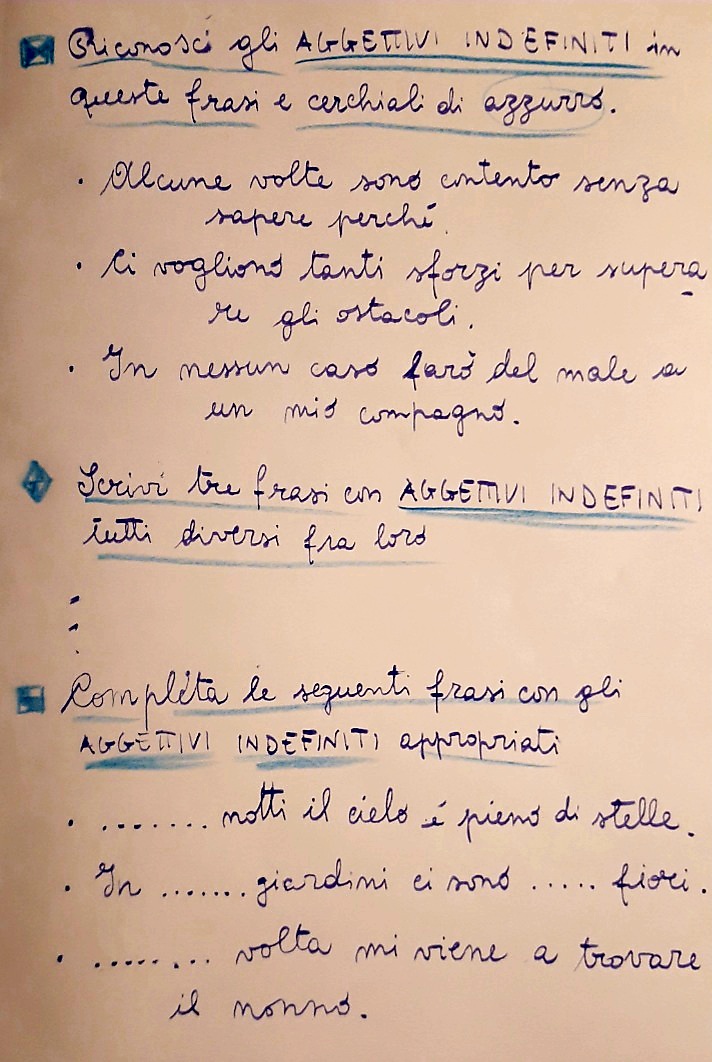 Riconosci gli AGGETTIVI INDEFINITI in
queste frasi e cerchiali di azzurro.
• Alcune volte sono contento senza
sapere perché.
• Ci vogliono tanti sforzi per supera
re gli ostacoli.
• In nessun caso farò del male a
un mio compagno.
Scrivi tre frasi con AGGETTIVI INDEFINITI
tutti diversi fra loro
Completa le seguenti frasi con gli
AGGETTIVI INDEFINITI appropriati
• ........ notti il cielo é pieno di stelle.
• In ....... giardini ci sono ..... fiori.
• ........ volta mi viene a trovare
il nonno.